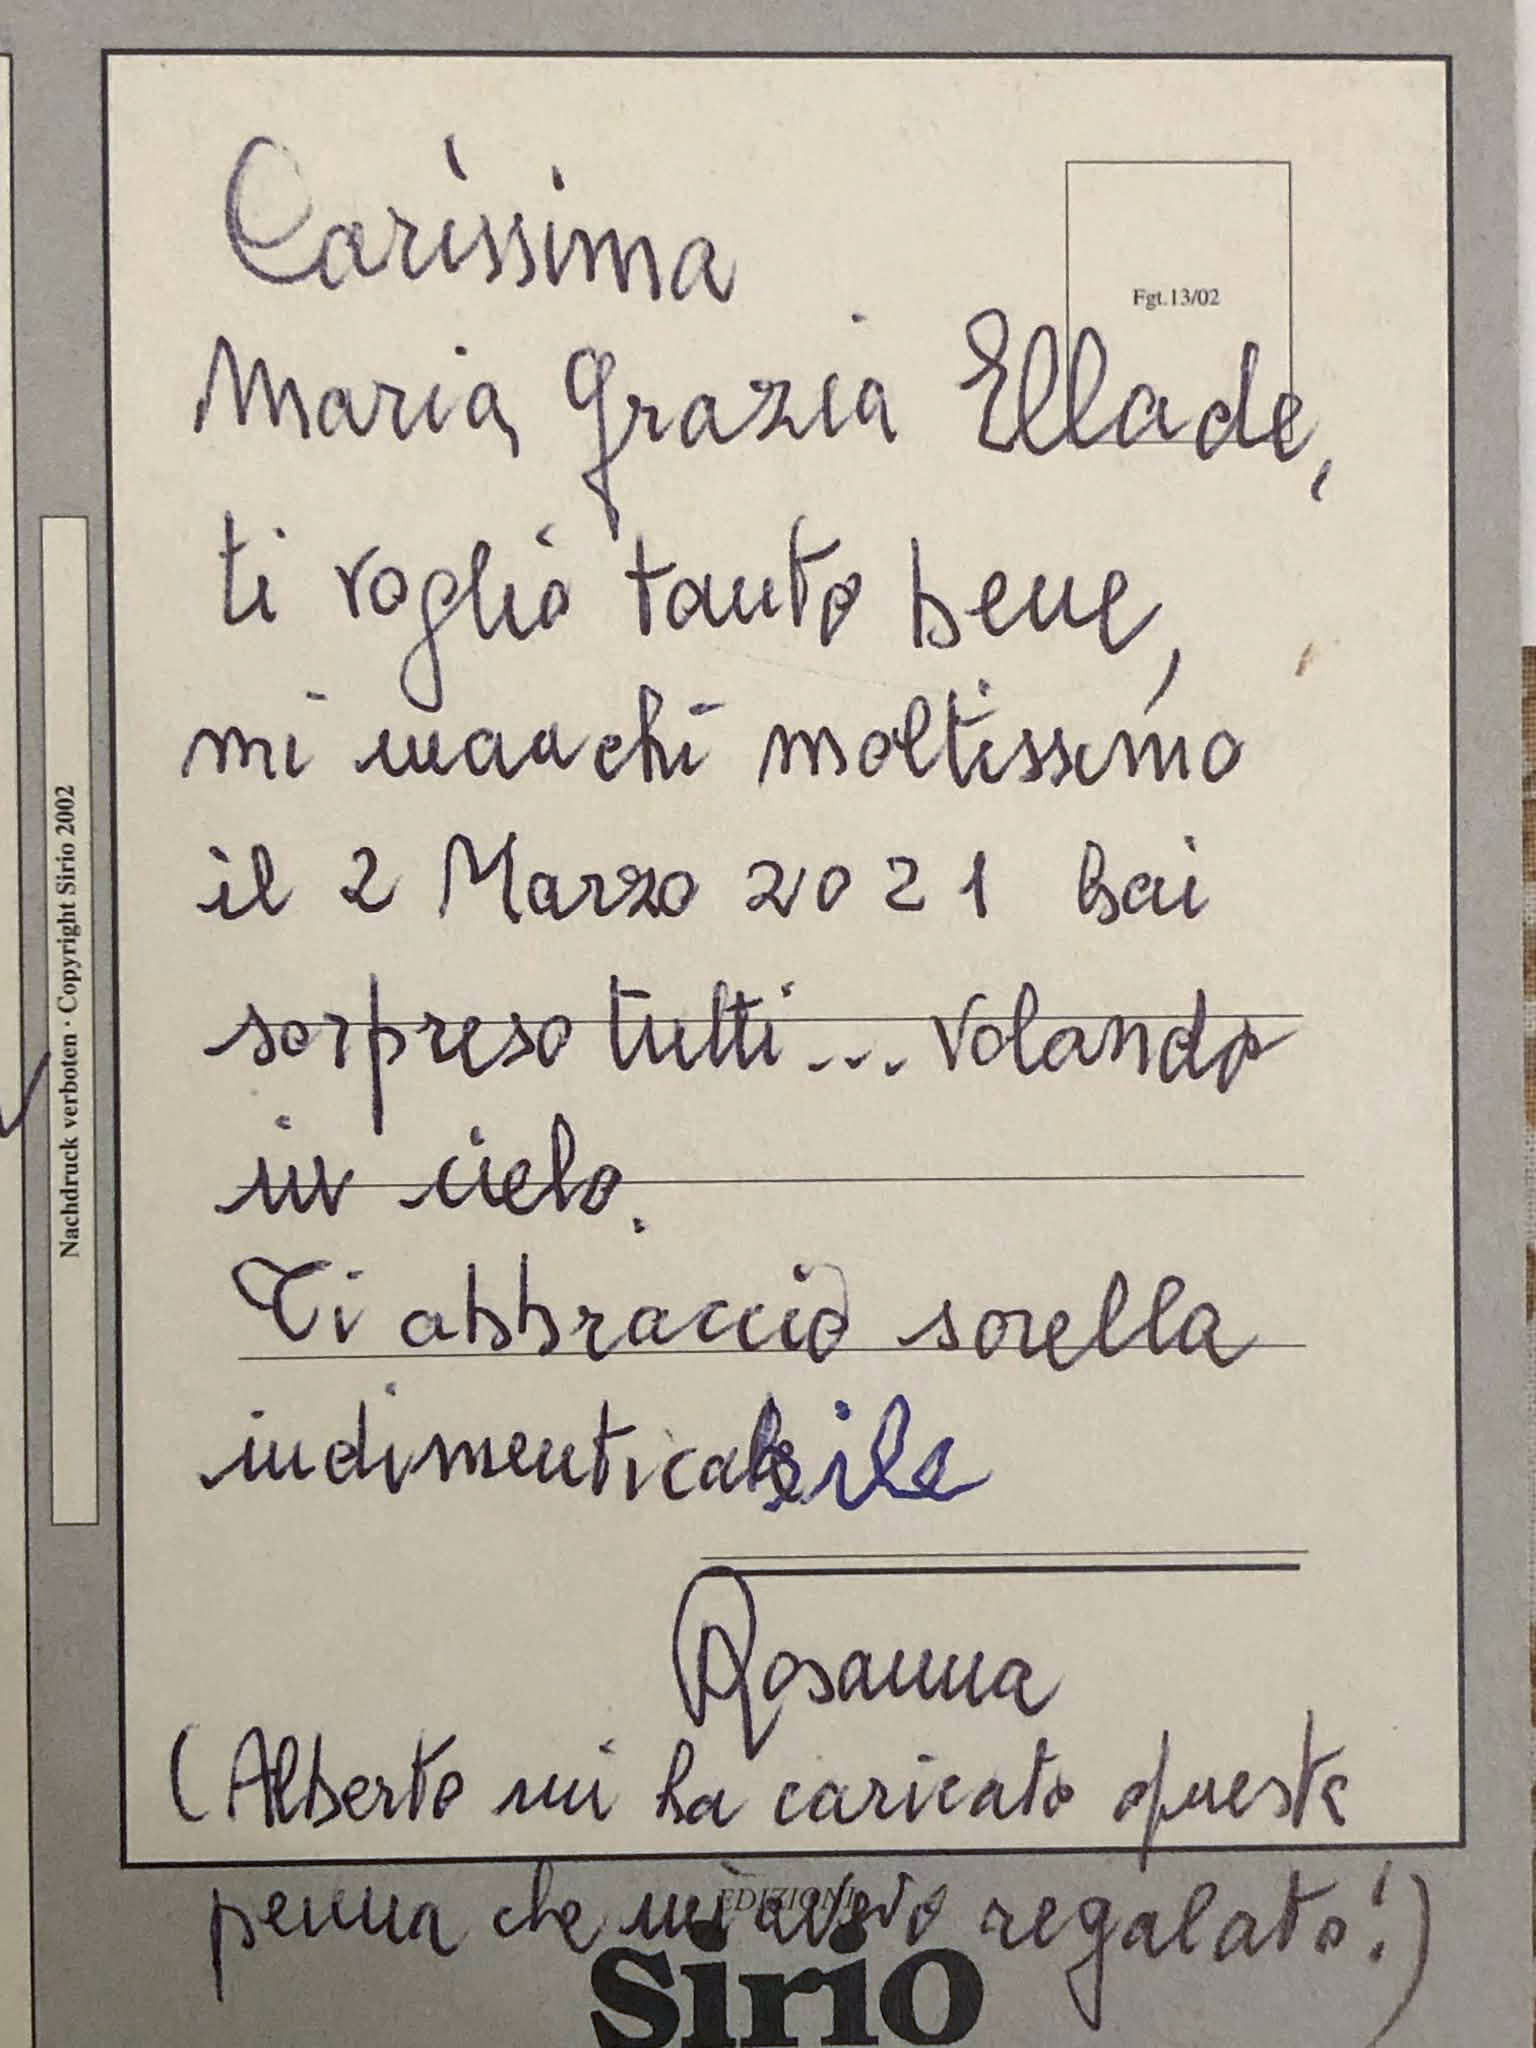 Carissima
Fgt.13/02
Maria Grazia Ellade,
ti voglio tanto bene,
mi manchi moltissimo
il 2 Marzo 2021 hai
sorpreso tutti... volando
in cielo.
Ti abbraccio sorella
indimenticabile
Rosanna
(Alberto mi ha caricato questa
penna che mi avevo regalato!)
EDIZIONI
sirio
Nachdruck verboten · Copyright Sirio 2002